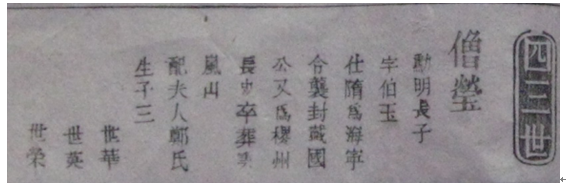 四三世
僧瑩
勳明長子
字伯玉
仕隋為海寧
令襲封戴國
公又為稷州
長史卒葬
嵐山
配夫人鄭氏
生子三
世華
世英
世榮